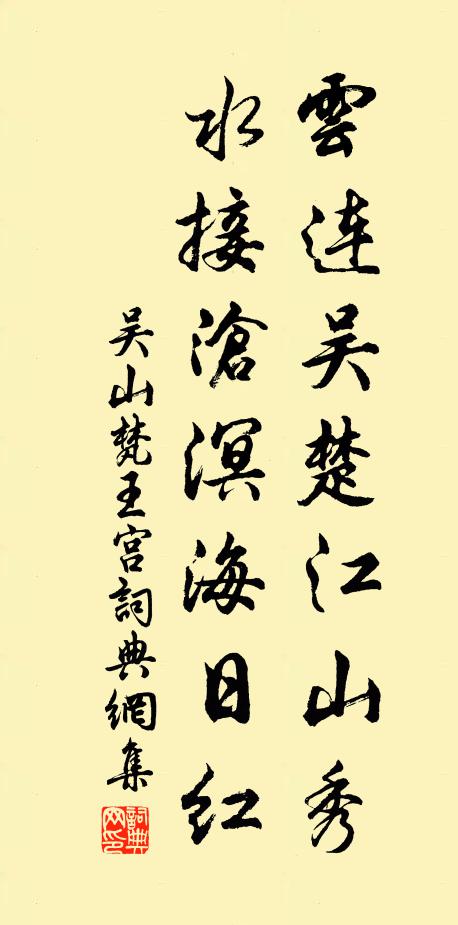 雲連吴楚江山秀
水接滄溟海日紅
吴山梵王宫詞典網集
詞典网印